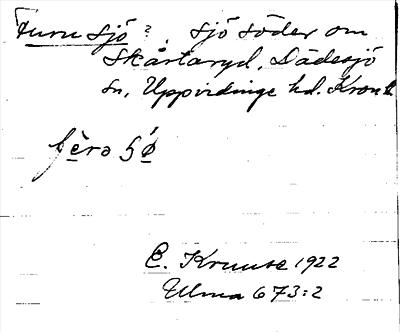 Furu sjö ?, sjö söder om
Skårtaryd, Dädesjö
sn, Uppvidinge hd. Kron.
E. Kruuse 1922
Ulma 673:2